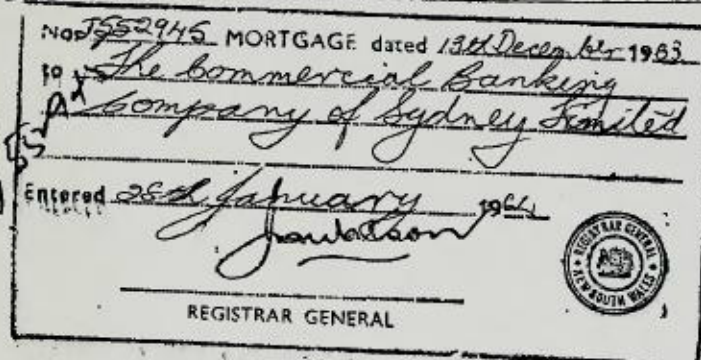 No. J552945 MORTGAGE dated 13th December 1963
to The Commercial Banking
Company of Sydney Limited
Entered 28th January 1964
REGISTRAR GENERAL
REGISTRAR GENERAL
NEW SOUTH WALES